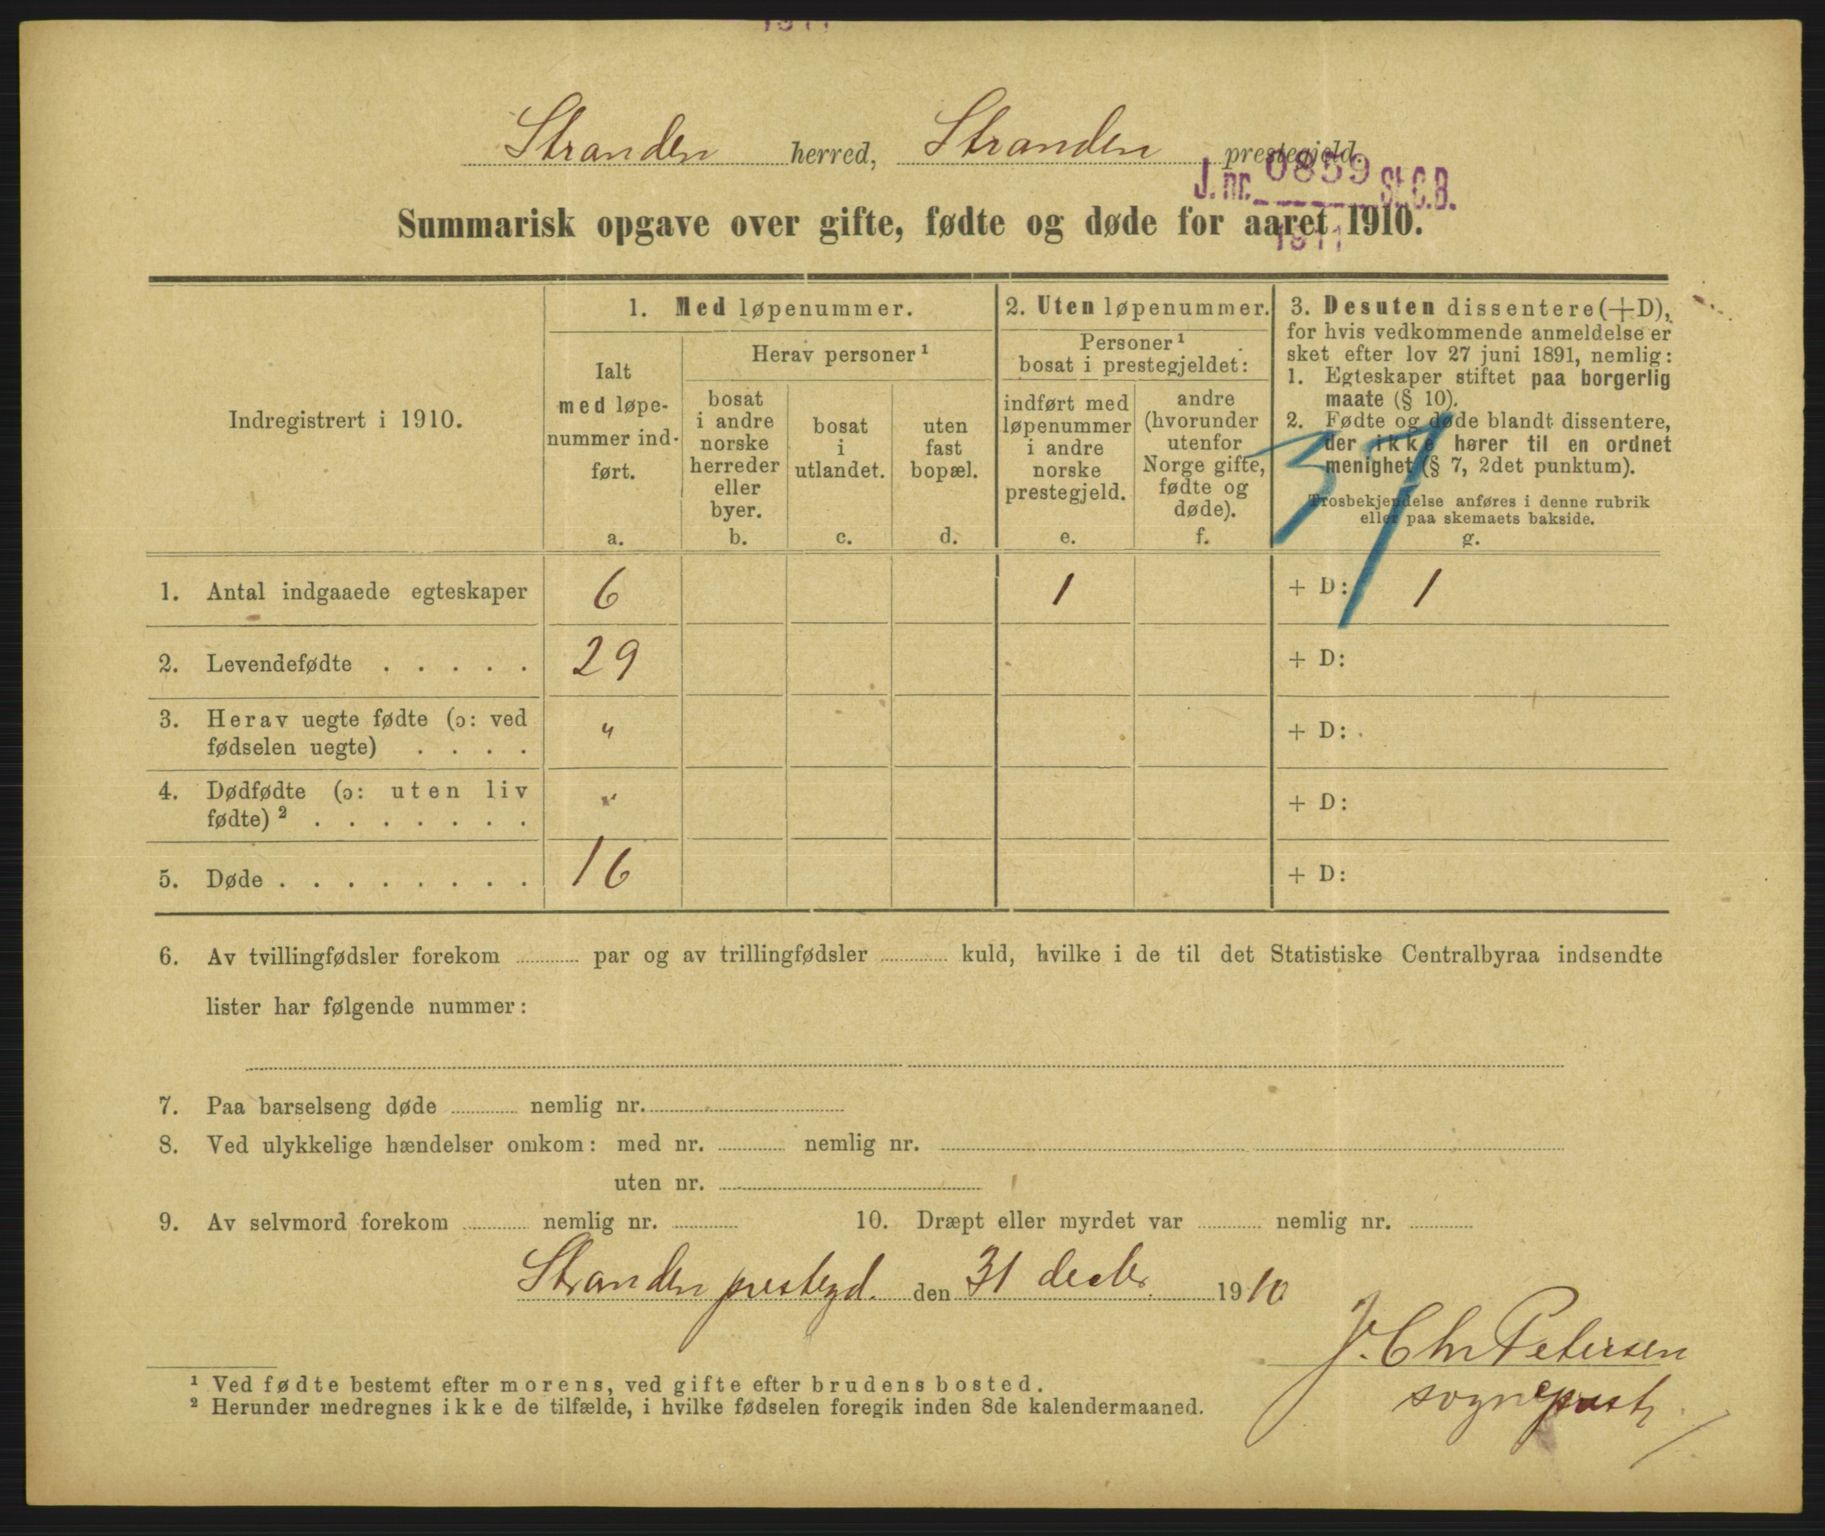 1911
Stranden herred, Stranden prestegjeld.
J. nr. 0859 St.C.B.
1911
Summarisk opgave over gifte, fødte og døde for aaret 1910.
Indregistrert i 1910.
1. Med løpenummer.
Ialt
med løpe-
nummer ind-
ført.
a.
Herav personer ¹
bosat
i andre
norske
herreder
eller
byer.
b.
bosat
i
utlandet.
c.
uten
fast
bopæl.
d.
2. Uten løpenummer.
Personer ¹
bosat i prestegjeldet:
indført med
løpenummer
i andre
norske
prestegjeld.
e.
andre
(hvorunder
utenfor
Norge gifte,
fødte og
døde).
f.
3. Desuten dissentere (+D),
for hvis vedkommende anmeldelse er
sket efter lov 27 juni 1891, nemlig:
1. Egteskaper stiftet paa borgerlig
maate (§ 10).
2. Fødte og døde blandt dissentere,
der ikke hører til en ordnet
menighet (§ 7, 2det punktum).
Trosbekjendelse anføres i denne rubrik
eller paa skemaets bakside.
g.
37
1. Antal indgaaede egteskaper 6 1 + D: 1
2. Levendefødte . . . . . 29 + D:
3. Herav uegte fødte (ɔ: ved
fødselen uegte) . . . . " + D:
4. Dødfødte (ɔ: uten liv
fødte) ² . . . . . . . " + D:
5. Døde . . . . . . . . 16 + D:
6. Av tvillingfødsler forekom ............ par og av trillingfødsler ............ kuld, hvilke i de til det Statistiske Centralbyraa indsendte
lister har følgende nummer:
7. Paa barselseng døde ............ nemlig nr. ............
8. Ved ulykkelige hændelser omkom: med nr. ............ nemlig nr. ............
uten nr. ............
9. Av selvmord forekom ............ nemlig nr. ............ 10. Dræpt eller myrdet var ............ nemlig nr. ............
Stranden prestegd. den 31 decbr. 1910
J. Chr Petersen
sogneprest
¹ Ved fødte bestemt efter morens, ved gifte efter brudens bosted.
² Herunder medregnes ikke de tilfælde, i hvilke fødselen foregik inden 8de kalendermaaned.